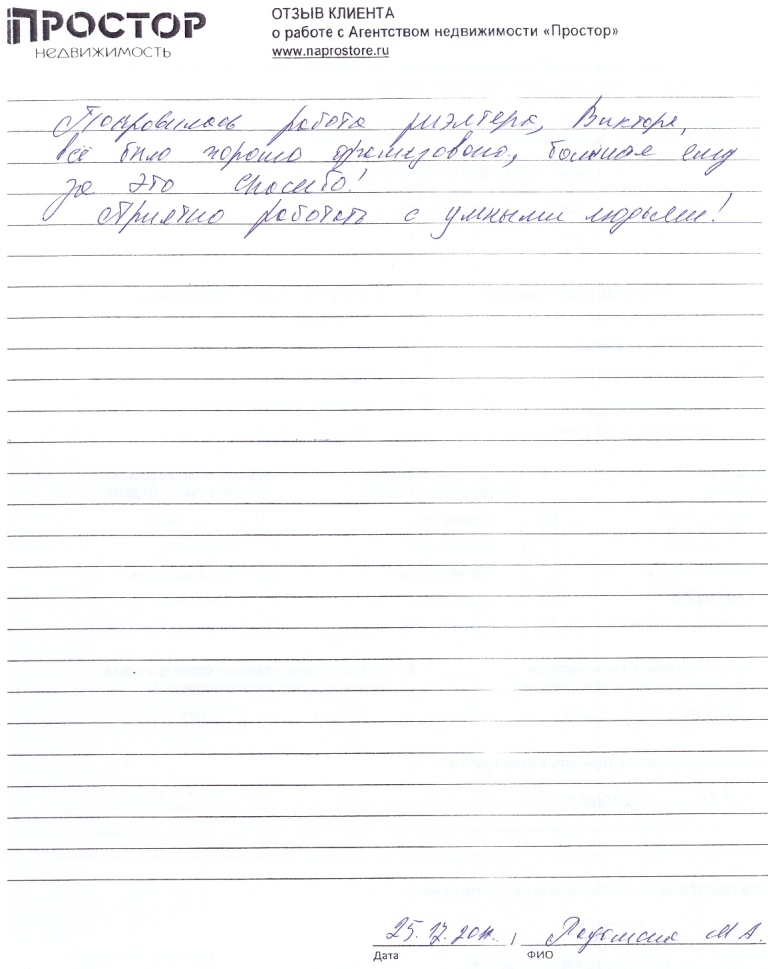 ПРОСТОР
НЕДВИЖИМОСТЬ
ОТЗЫВ КЛИЕНТА
о работе с Агентством недвижимости «Простор»
www.naprostore.ru
Понравилась работа риэлтера, Виктора,
всё было хорошо организовано, большое ему
за это спасибо!
Приятно работать с умными людьми!
25.12. /
М А.
Дата
ФИО